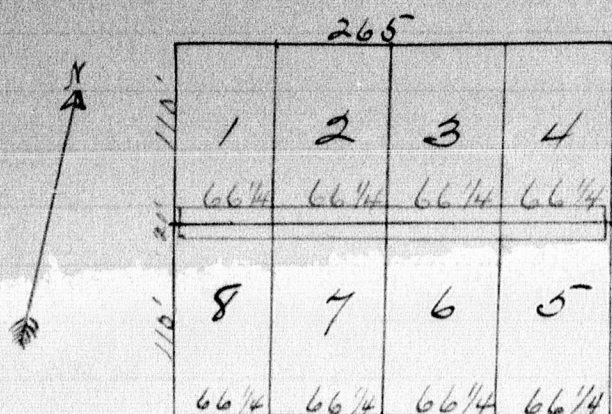 265
N
110'
1 2 3 4
66 1/4 66 1/4 66 1/4 66 1/4
20'
110'
8 7 6 5
66 1/4 66 1/4 66 1/4 66 1/4